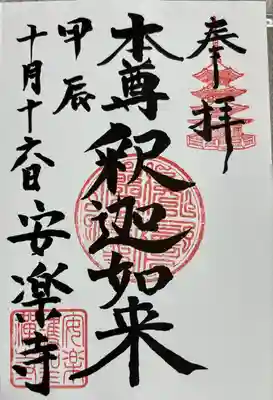 奉拝
本尊釈迦如来
甲辰
十月十六日
安楽寺